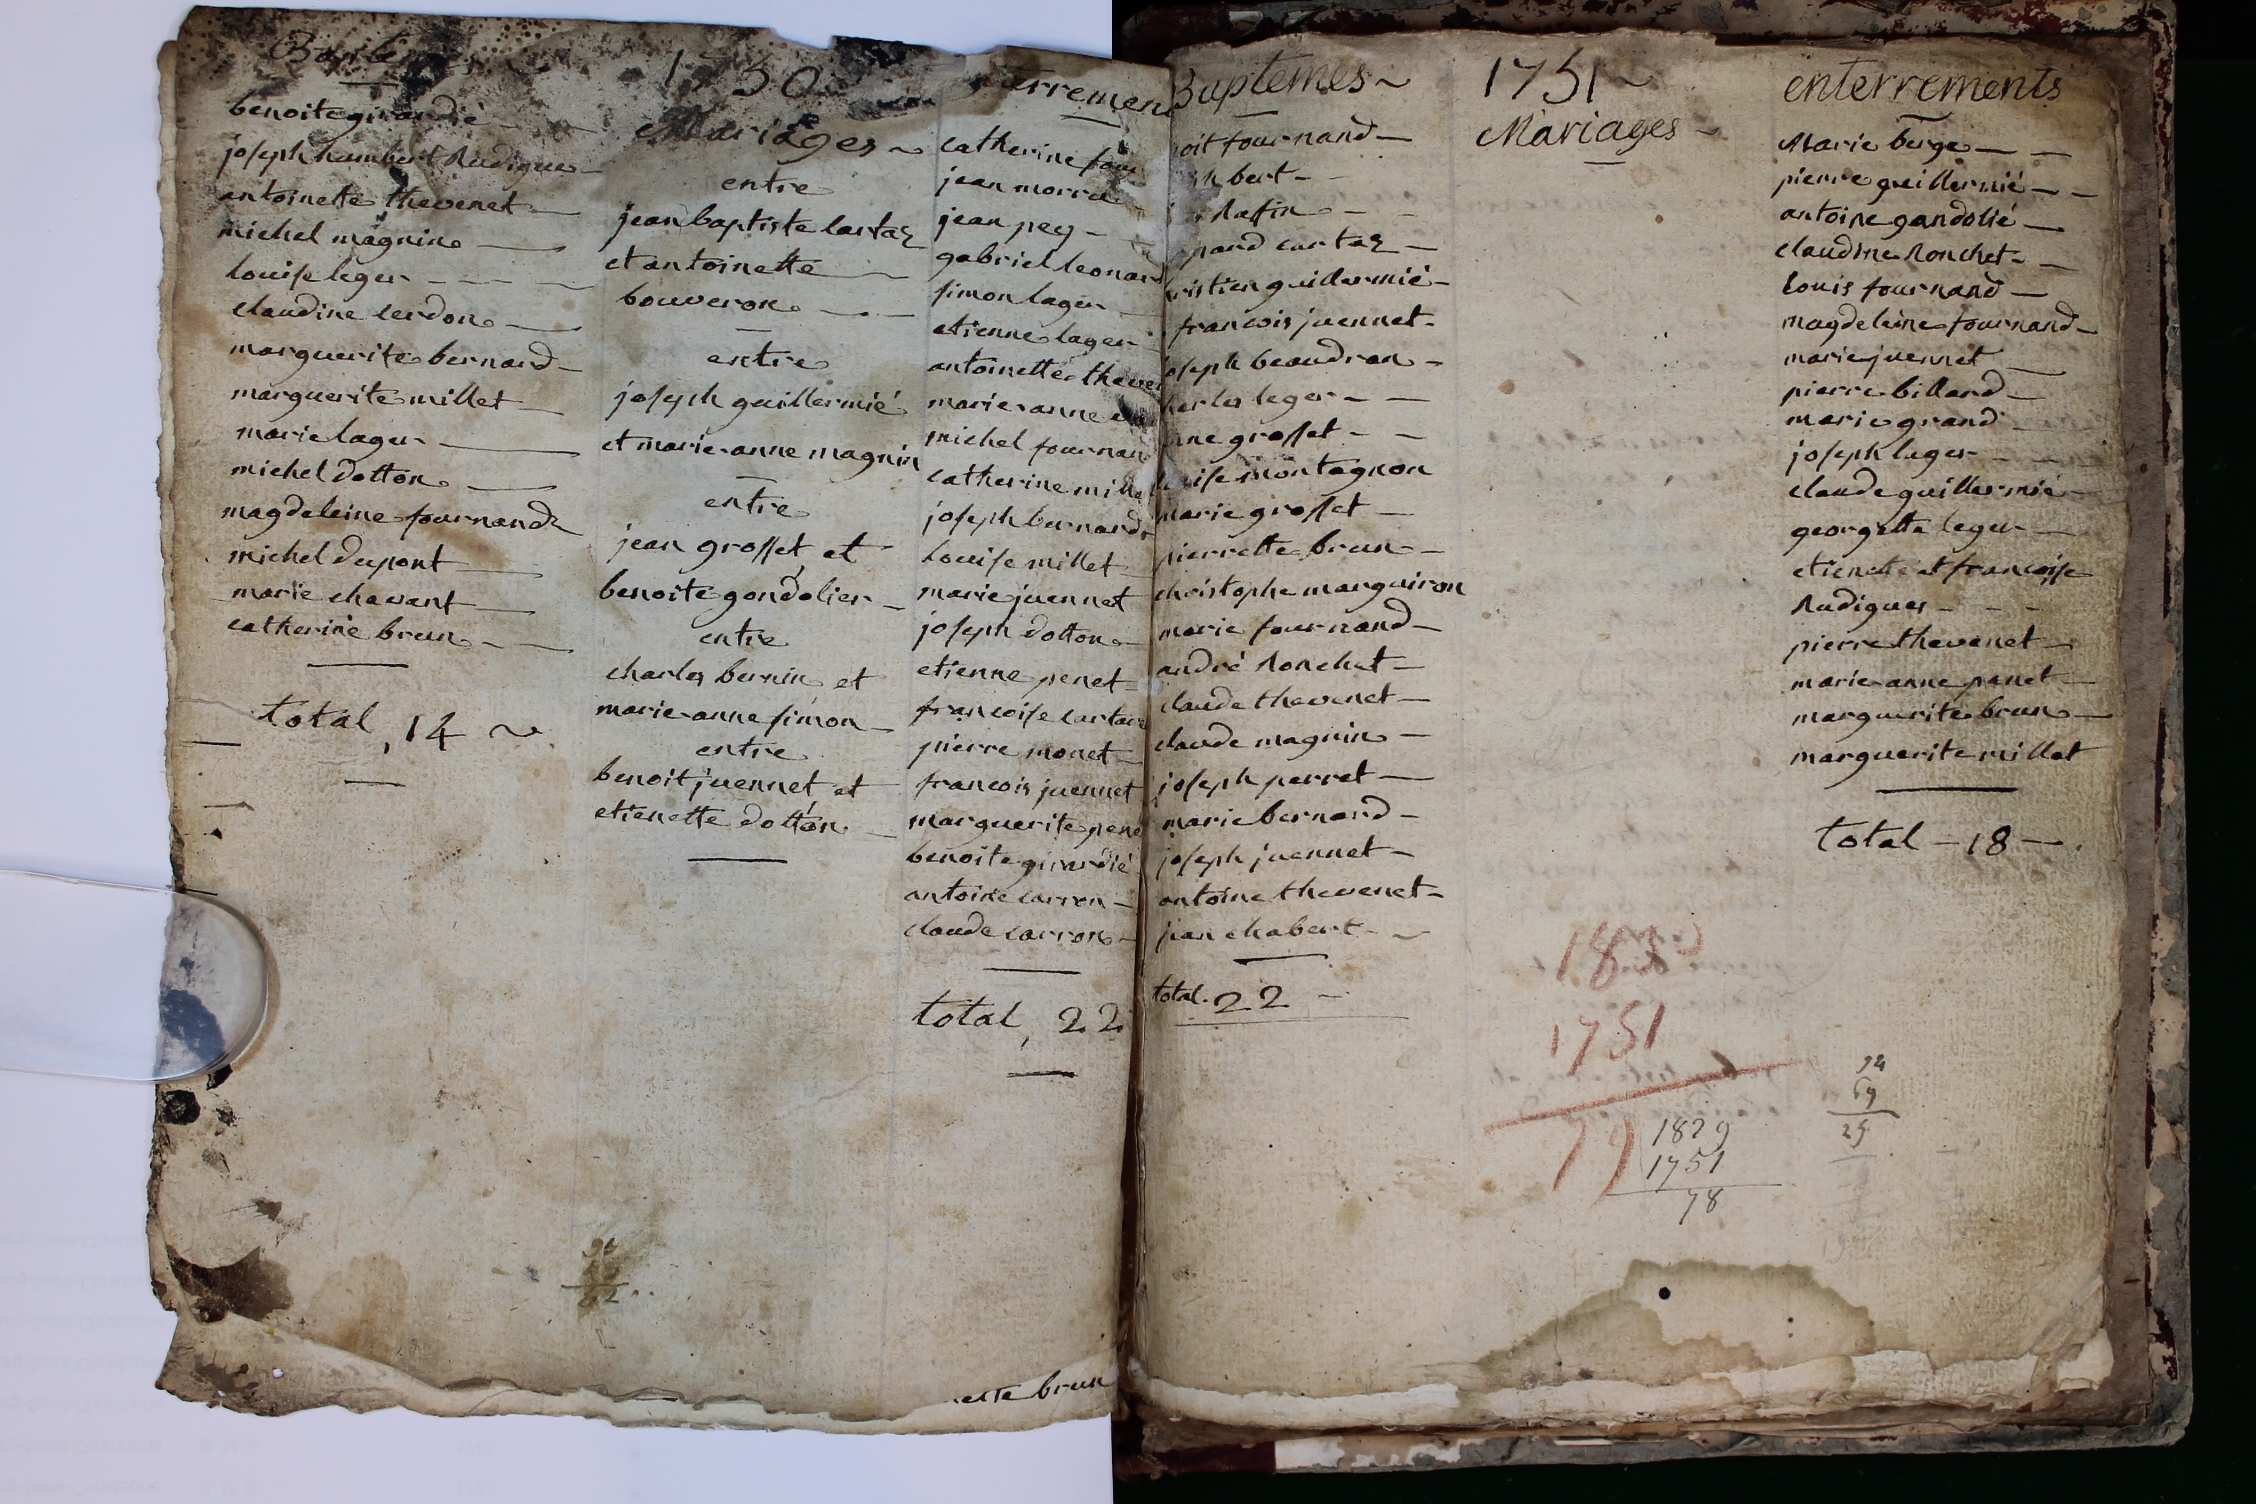 Baptemes
benoite girardié
joseph humbert Rudigue
antoinette thevenet
michel magnin
louise leger
claudine cerdon
marguerite bernard
marguerite millet
marie lager
michel dotton
magdeleine fournand
michel dupont
marie chavant
catherine brun
total, 14
1750
Mariages
entre
jean baptiste cartaz
et antoinette
bouveron
entre
joseph guillermié
et marie-anne magnin
entre
jean grosset et
benoite gondolier
entre
charles bernin et
marie-anne simon
entre
benoit juennet et
etienette dotton
terrement
catherine four
jean morre
jean pey
gabriel leonard
simon lager
etienne lager
antoinette theve
marie-anne
michel fournan
catherine mille
joseph bernard
louise millet
marie juennet
joseph dotton
etienne penet
francoise cartar
pierre monet
francois juennet
marguerite pene
benoite girardié
antoine carron
claude carron
total, 22
ette brun
Baptemes
oit fournand
bert
Raffin
nard cartaz
ristien guillermié
francois juennet
oseph beaudran
harles leger
nne grosset
louise montagnon
marie grosset
pierrette brun
christophe marguiron
marie fournand
andré Ronchet
claude thevenet
claude magnin
joseph perret
marie bernard
joseph juennet
antoine thevenet
jean chabert
total. 22
1751
Mariages
1751
79
1829
1751
78
enterrements
Marie berge
pierre guillermié
antoine gandolié
claudine Ronchet
louis fournand
magdeleine fournand
marie juennet
pierre billard
marie grand
joseph lager
claude guillermié
georgette leger
etienette et francoise
Rudigues
pierre thevenet
marie-anne penet
marguerite brun
marguerite millet
total - 18
94
69
25